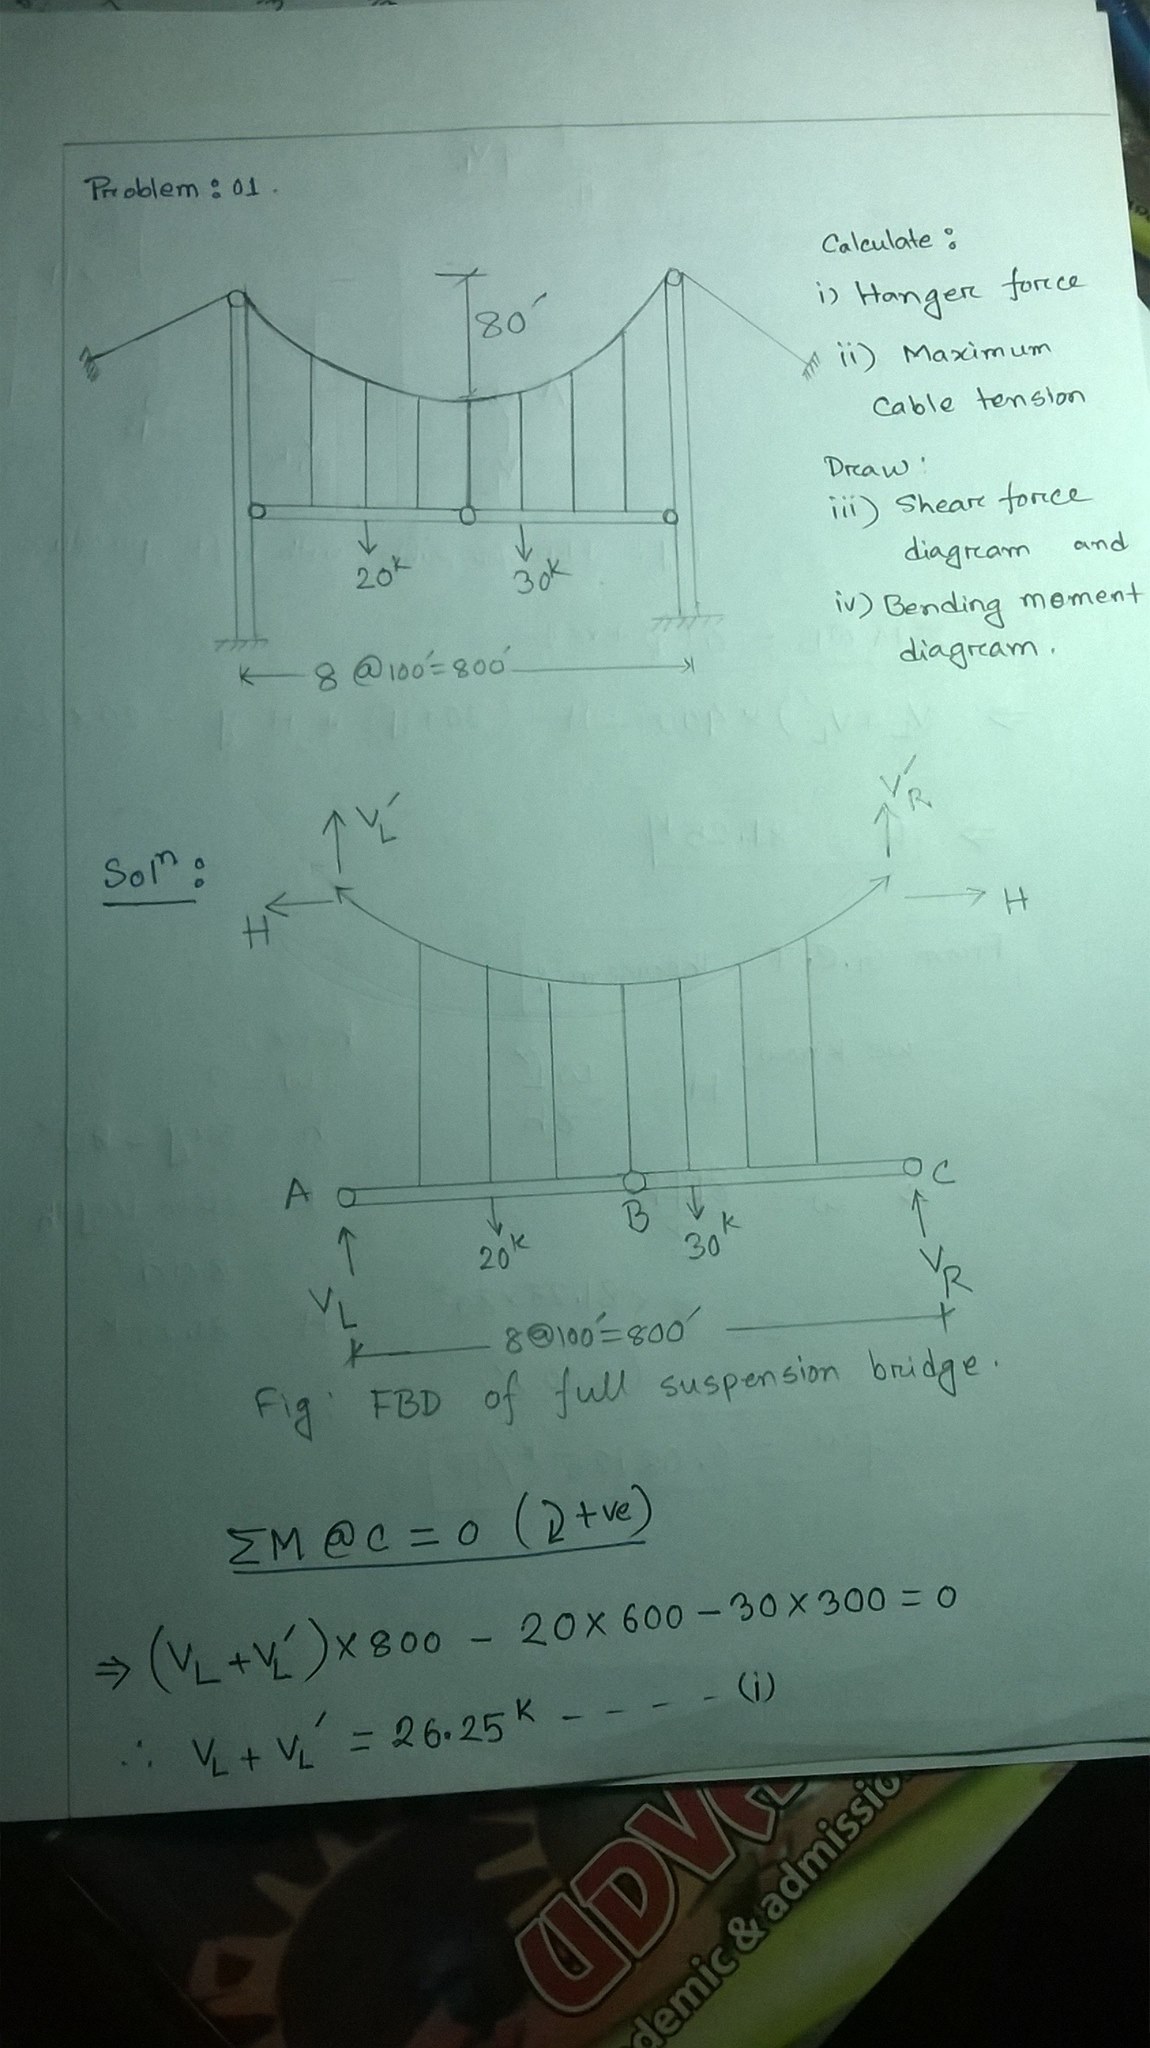 Problem: 01.
Calculate:
i) Hanger force
ii) Maximum
cable tension
Draw:
iii) Shear force
diagram and
iv) Bending moment
diagram.
80'
20k
30k
8 @100'=800'
Soln:
VL'
VR'
H
H
A
B
C
20k
30k
VL
VR
8@100'=800'
Fig: FBD of full suspension bridge.
ΣM @ C = 0 (↻+ve)
⇒ (VL+VL')×800 - 20×600-30×300=0
∴ VL+VL' = 26.25k - - - - (i)
UDV
demic & admission